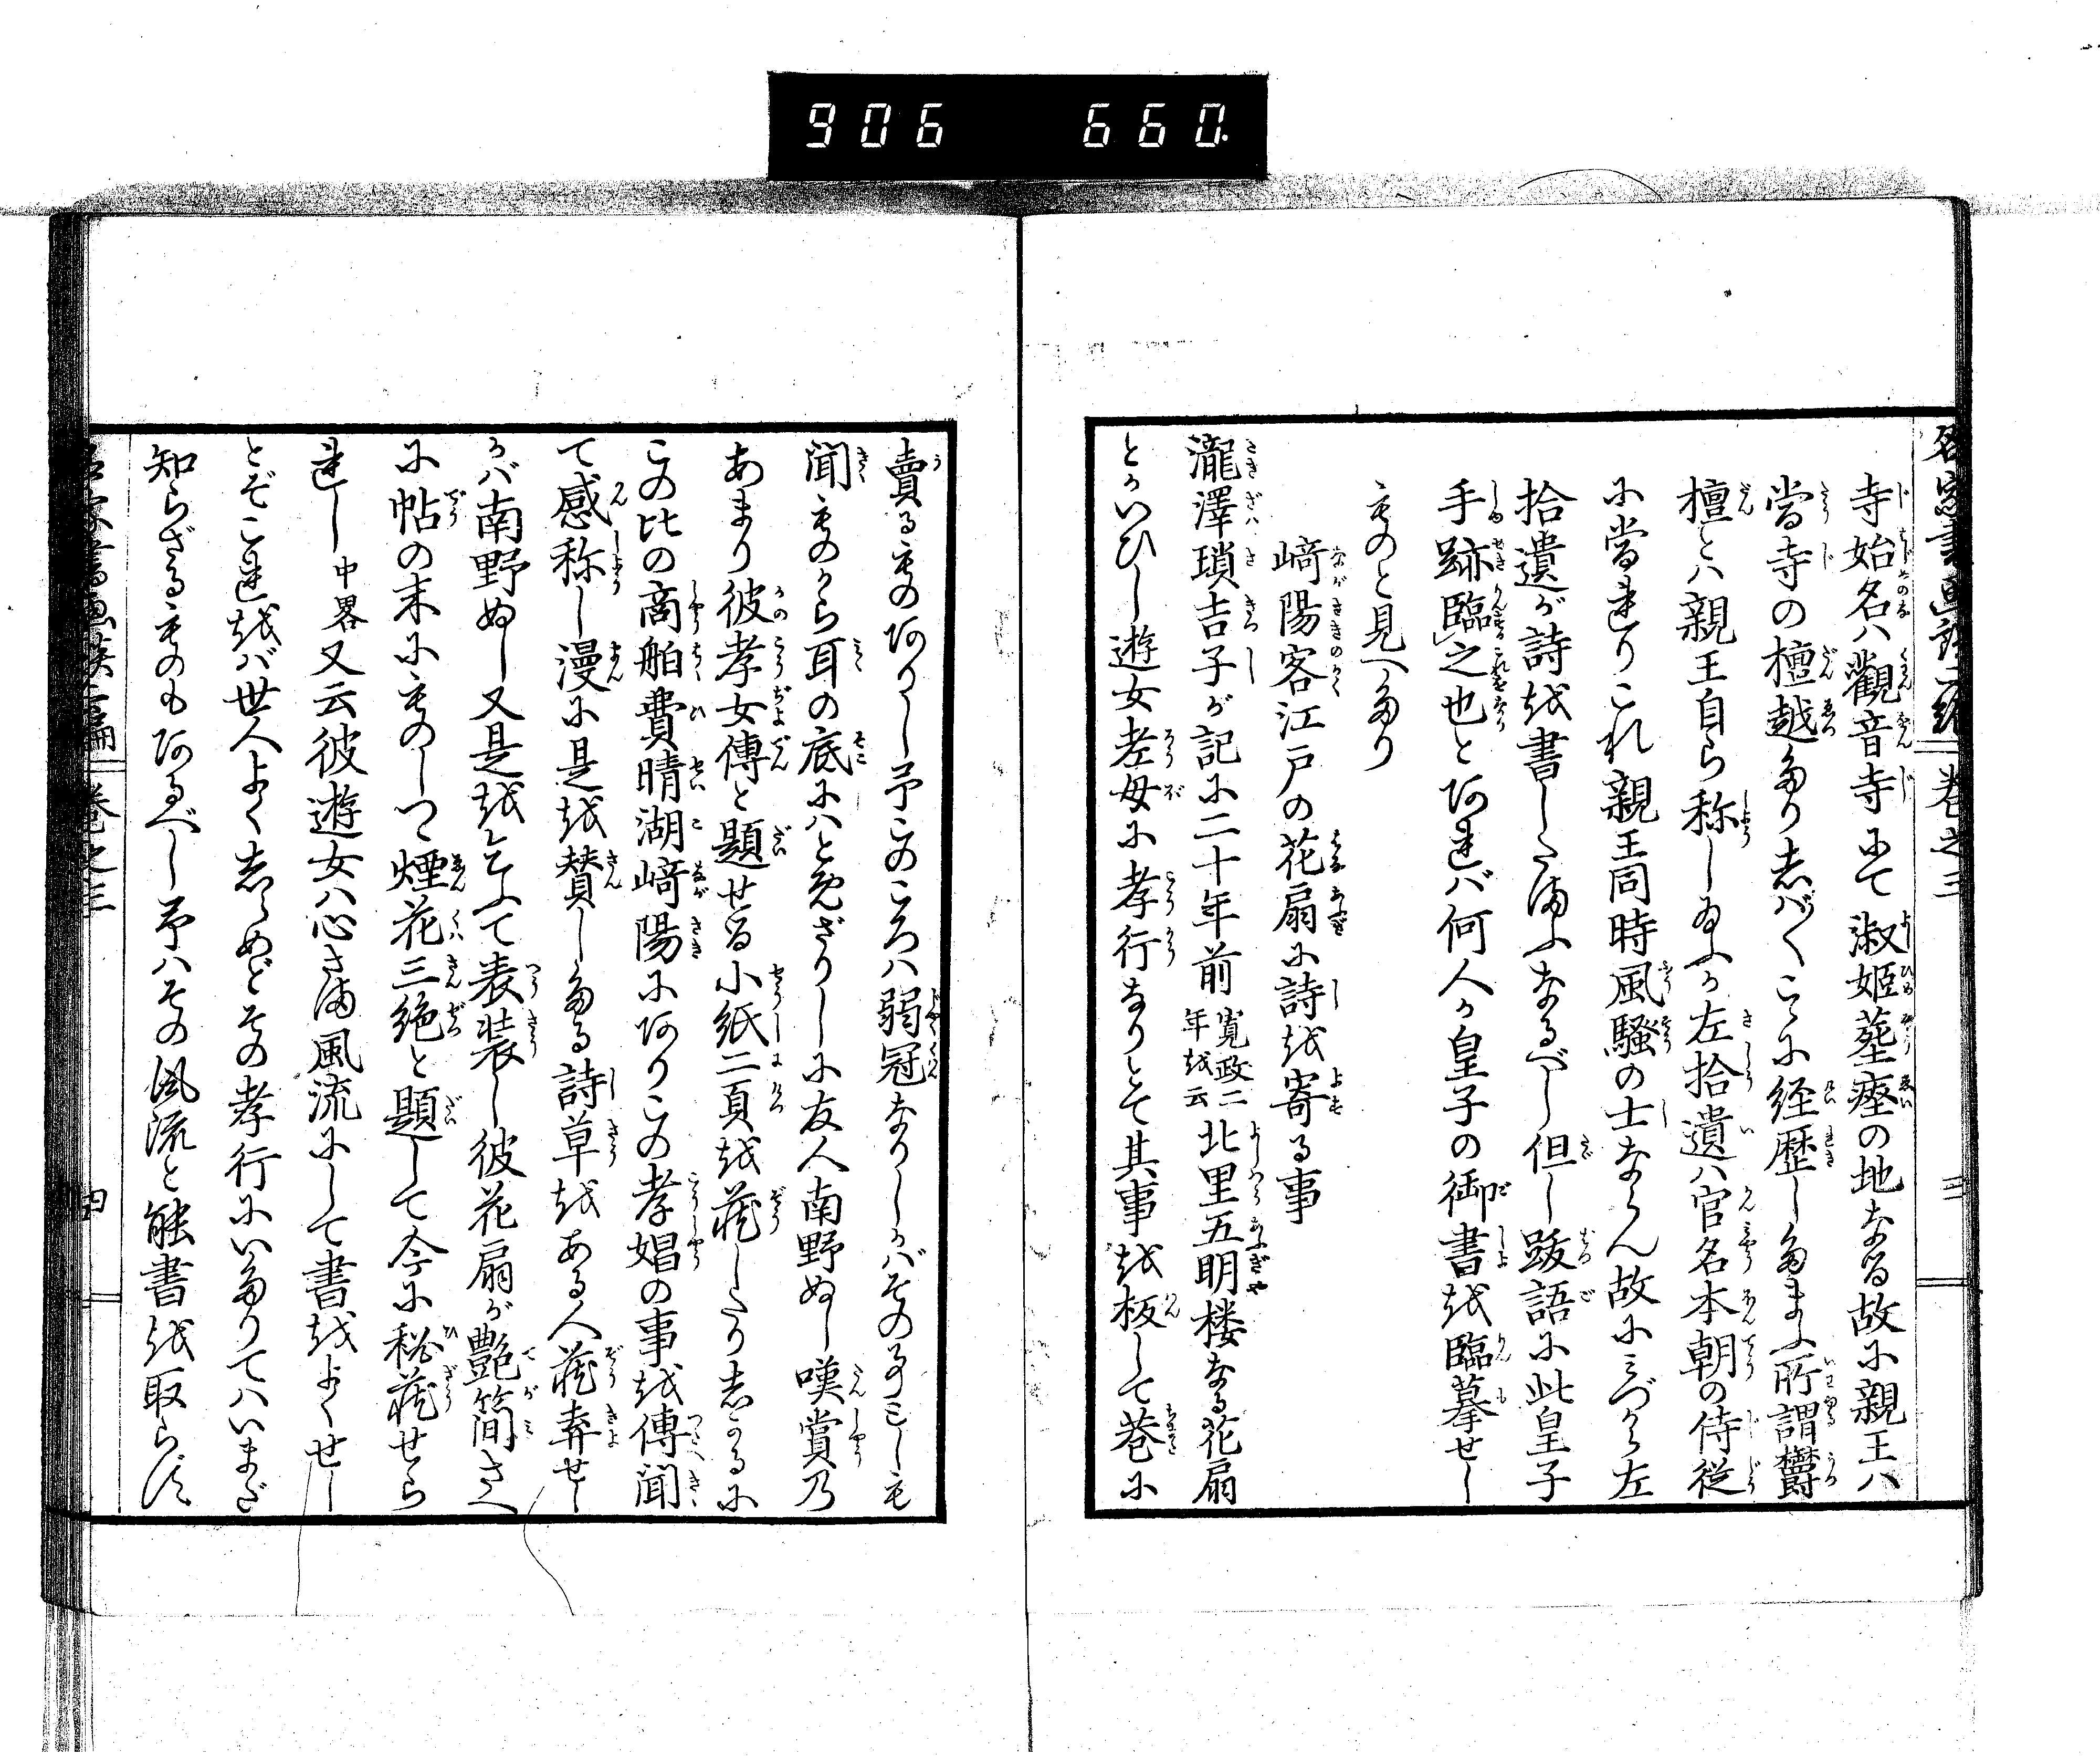 906 660
名家書画談二編 巻之三
寺始名ハ觀音寺にて淑姫塟瘞の地なる故に親王ハ
當寺の檀越なり志バ〳〵こゝに経歴したまふ所謂欝
檀とハ親王自ら称し給ふか左拾遺ハ官名本朝の侍従
に當れりこれ親王同時風騒の士ならん故にミづから左
拾遺が詩を書したまふなるべし但し跋語に此皇子
手跡臨之也とあれバ何人か皇子の御書を臨摹せし
ものと見へたり
﨑陽客江戸の花扇に詩を寄る事
瀧澤瑣吉子が記に二十年前寛政二年を云北里五明楼なる花扇
とかいひし遊女老母に孝行なりとて其事を板して巷に
賣るものありし予このころハ弱冠なりしかバその事としも
聞ものから耳の底にハとめざりしに友人南野ぬし嘆賞乃
あまり彼孝女傳と題せる小紙二頁を蔵したり志かるに
この比の商舶費晴湖﨑陽にありこの孝娼の事を傳聞
て感称し漫に是を賛したる詩草をある人蔵弆せし
かバ南野ぬし又是を乞ふて表装し彼花扇が艶簡さへ
に帖の末にものしつゝ煙花三絶と題して今に秘蔵せら
れし中畧又云彼遊女ハ心さま風流にして書をよくせし
とぞこれをバ世人よく志らめどその孝行にいたりてハいまだ
知らざるものもあるべし予ハその風流と能書を取らず
名家書画談二編 巻之三 四